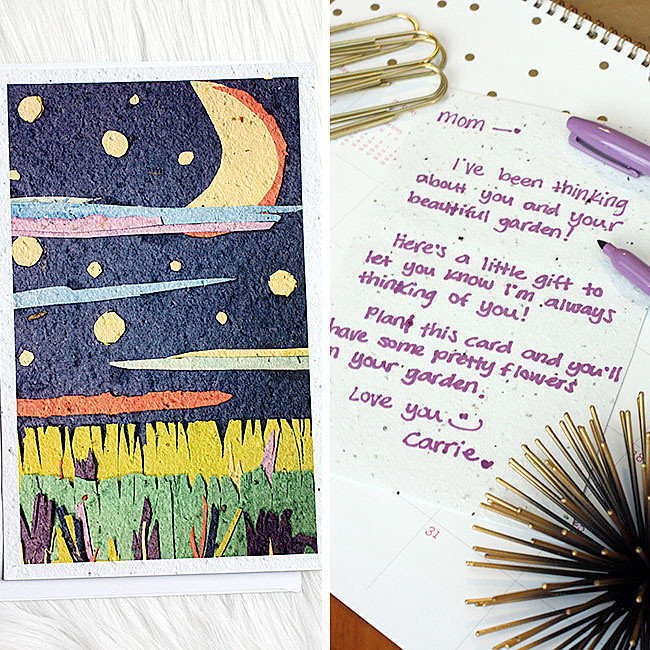 mom —
I've been thinking
about you and your
beautiful garden!
Here's a little gift to
let you know I'm always
thinking of you!
Plant this card and you'll
have some pretty flowers
in your garden.
Love you
Carrie
31